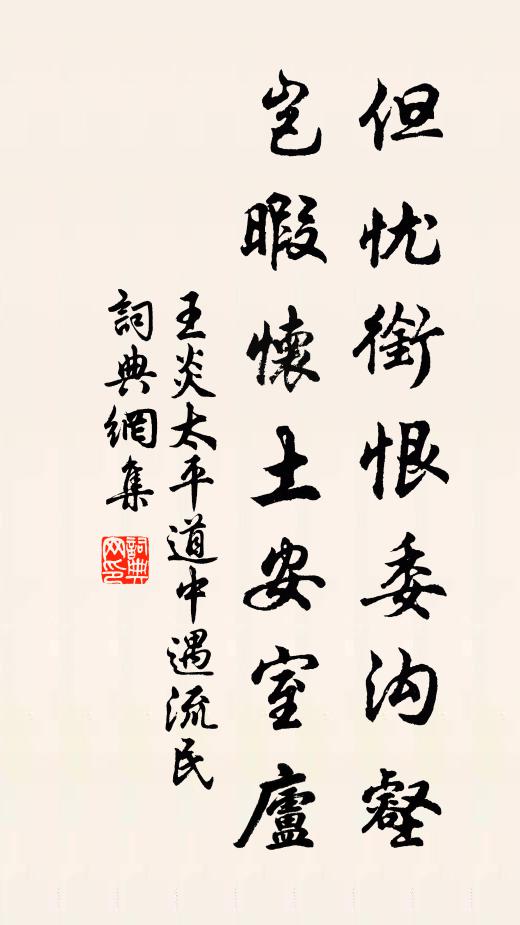 但忧銜恨委沟壑
岂暇懷土安室廬
王炎太平道中遇流民
詞典網集
詞典网印